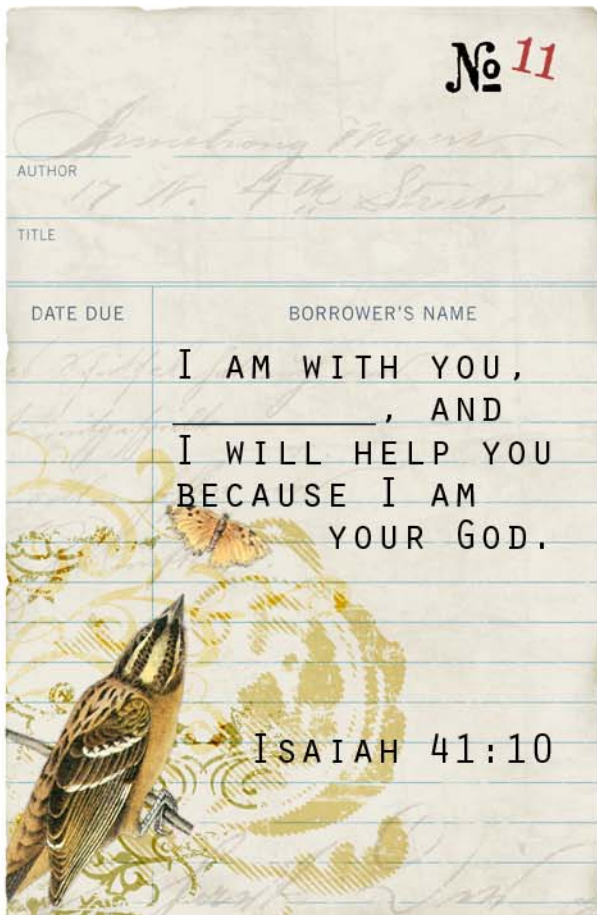 No 11
Armstrong
AUTHOR
17 N. 4th Street
TITLE
DATE DUE
BORROWER'S NAME
I AM WITH YOU,
__________, AND
I WILL HELP YOU
BECAUSE I AM
YOUR GOD.
ISAIAH 41:10